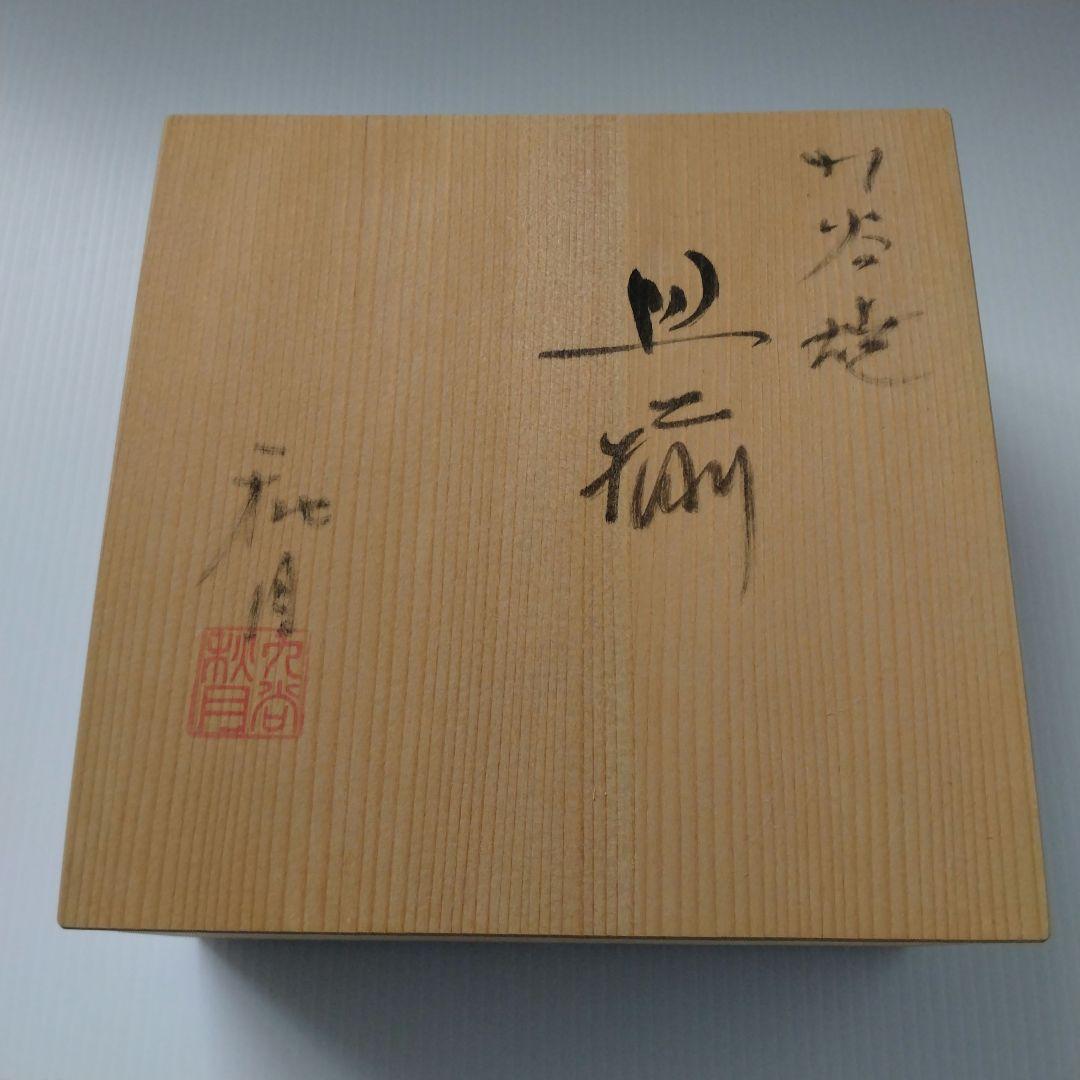 九谷焼
皿揃
秋月
九谷
秋月